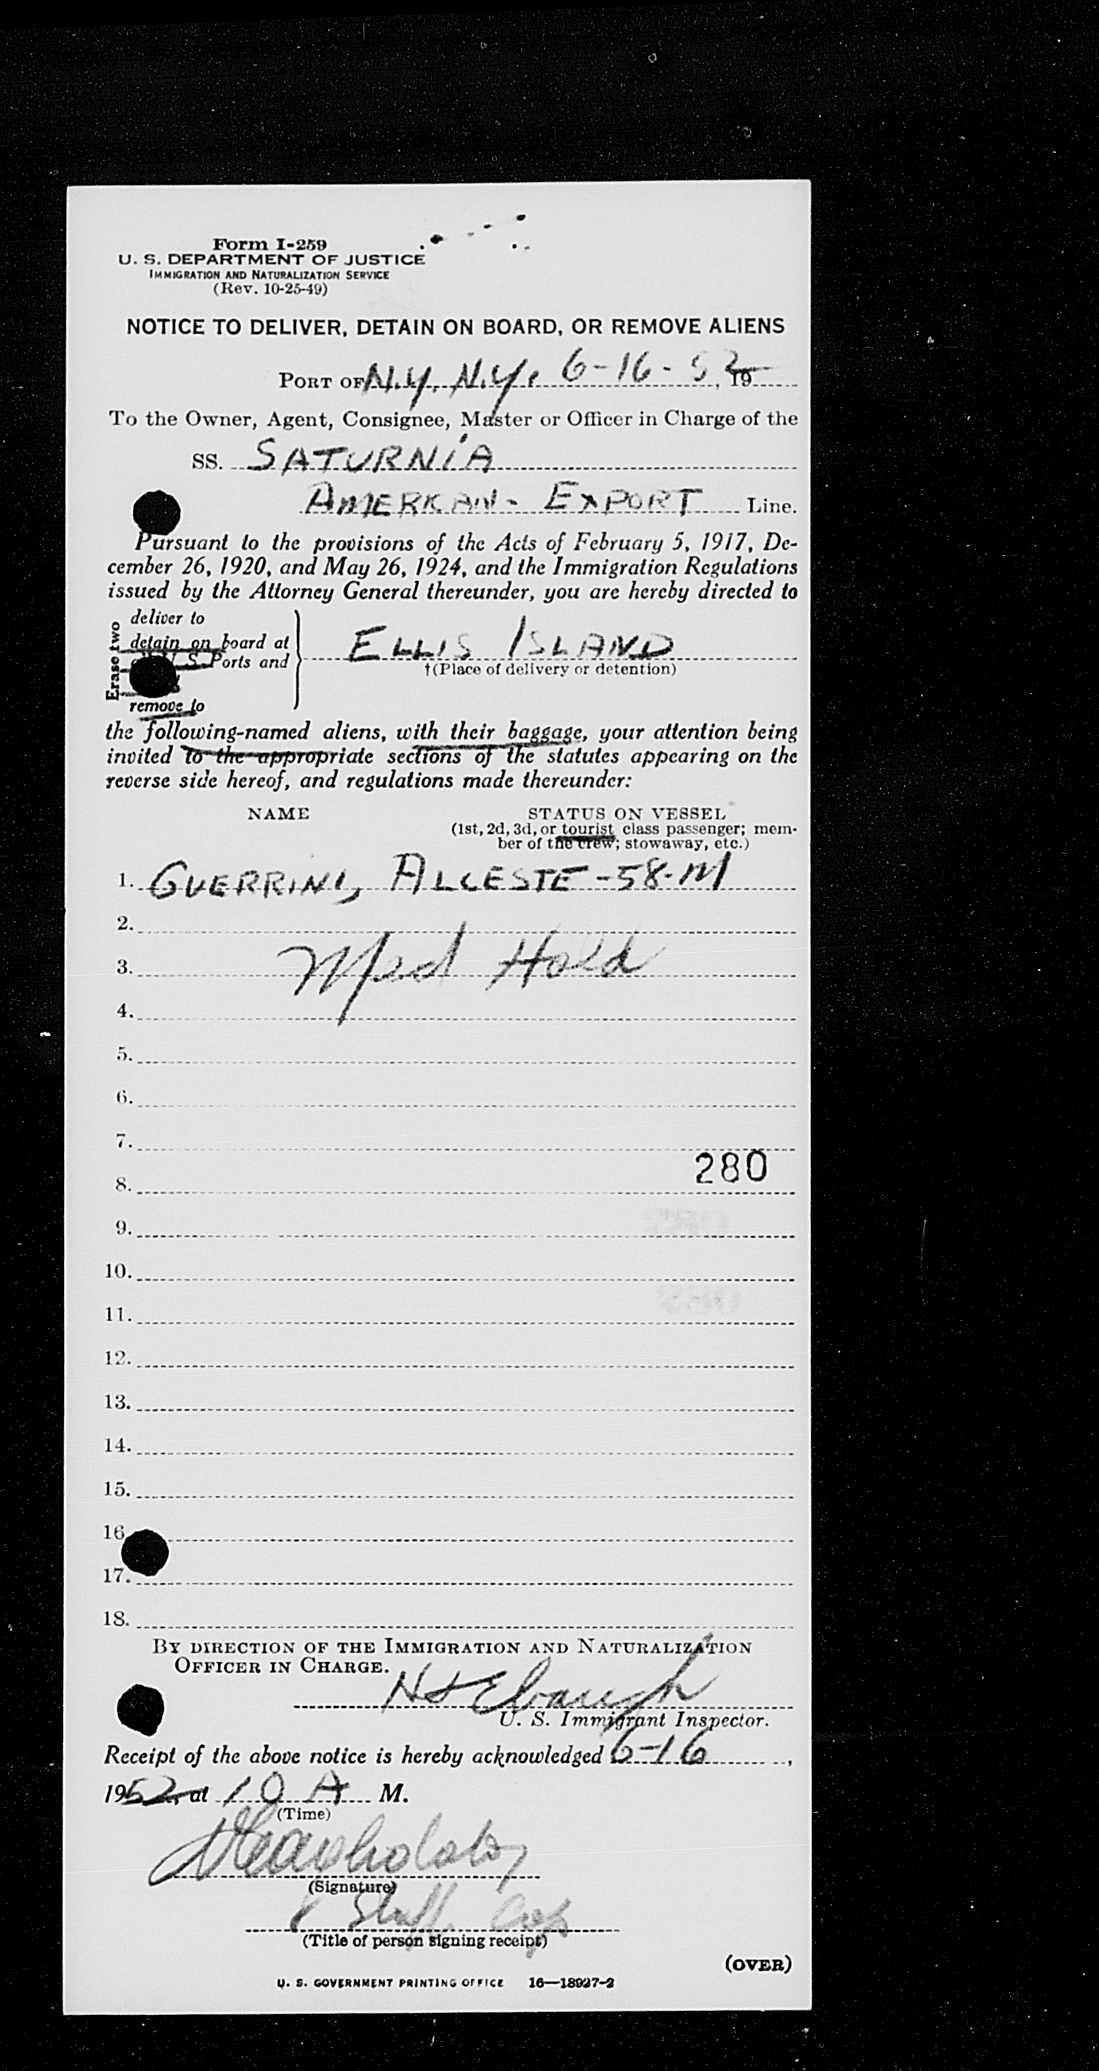 Form I-259
U. S. DEPARTMENT OF JUSTICE
IMMIGRATION AND NATURALIZATION SERVICE
(Rev. 10-25-49)
NOTICE TO DELIVER, DETAIN ON BOARD, OR REMOVE ALIENS
PORT OF N.Y, N.Y, 6-16-52, 19
To the Owner, Agent, Consignee, Master or Officer in Charge of the
SS. SATURNIA
AMERICAN- EXPORT Line.
Pursuant to the provisions of the Acts of February 5, 1917, De-
cember 26, 1920, and May 26, 1924, and the Immigration Regulations
issued by the Attorney General thereunder, you are hereby directed to
Erase two
deliver to
detain on board at
U S Ports and
remove to
ELLIS ISLAND
†(Place of delivery or detention)
the following-named aliens, with their baggage, your attention being
invited to the appropriate sections of the statutes appearing on the
reverse side hereof, and regulations made thereunder:
NAME STATUS ON VESSEL
(1st, 2d, 3d, or tourist class passenger; mem-
ber of the crew; stowaway, etc.)
1. GUERRINI, ALCESTE-58-M
2.
3. Med Hold
4.
5.
6.
7.
280
8.
9.
10.
11.
12.
13.
14.
15.
16
17.
18.
BY DIRECTION OF THE IMMIGRATION AND NATURALIZATION
OFFICER IN CHARGE.
U. S. Immigrant Inspector.
Receipt of the above notice is hereby acknowledged 6-16,
1952, at 10 A M.
(Time)
(Signature)
(Title of person signing receipt)
(OVER)
U. S. GOVERNMENT PRINTING OFFICE 16—18927-2